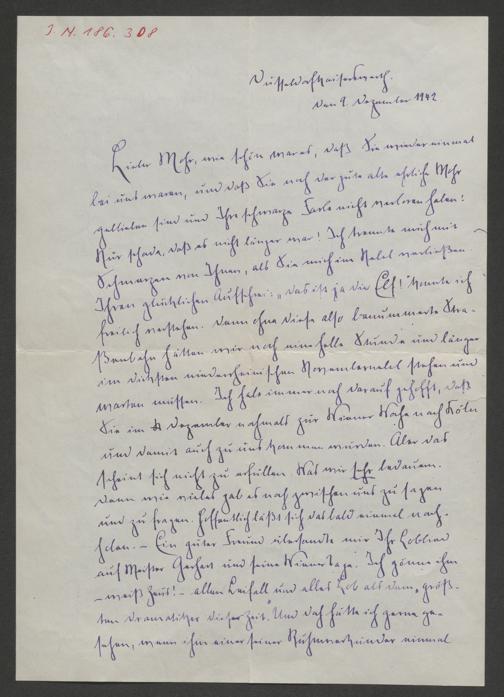 I. N. 186.308
Düsseldorf-Kaiserswerth.
den 9. Dezember 1942
Lieber Mohr, wie schön war es, daß Sie wieder einmal
bei uns waren, und daß Sie noch der gute alte ehrliche Mohr
geblieben sind und Ihre schwarze Farbe nicht verloren haben!
Nur schade, daß es nicht länger war! Ich trennte mich mit
Schmerzen von Ihnen, als Sie mich im Nebel verließen.
Ihren glücklichen Aufschrei: „das ist ja die Elf!" konnte ich
freilich verstehen. Denn ohne diese also benummerte Stra-
ßenbahn hätten wir noch eine halbe Stunde und länger
im dicksten niederrheinischen Novembernebel stehen und
warten müssen. Ich habe immer noch darauf gehofft, daß
Sie im Dezember nochmals zur Wiener Woche nach Köln
und damit auch zu uns kommen würden. Aber das
scheint sich nicht zu erfüllen. Was wir sehr bedauern.
Denn wie vieles gab es noch zwischen uns zu sagen
und zu fragen. Hoffentlich läßt sich das bald einmal nach-
holen. – Ein guter Freund übersandte mir Ihr Loblied
auf Meister Gerhart und seine Wiener Tage. Ich gönne ihm
– weiß Zeus! – allen Beifall und alles Lob als dem „größ-
ten Dramatiker dieser Zeit". Und doch hätte ich gerne ge-
sehen, wenn ihm einer seiner Ruhmverkünder einmal